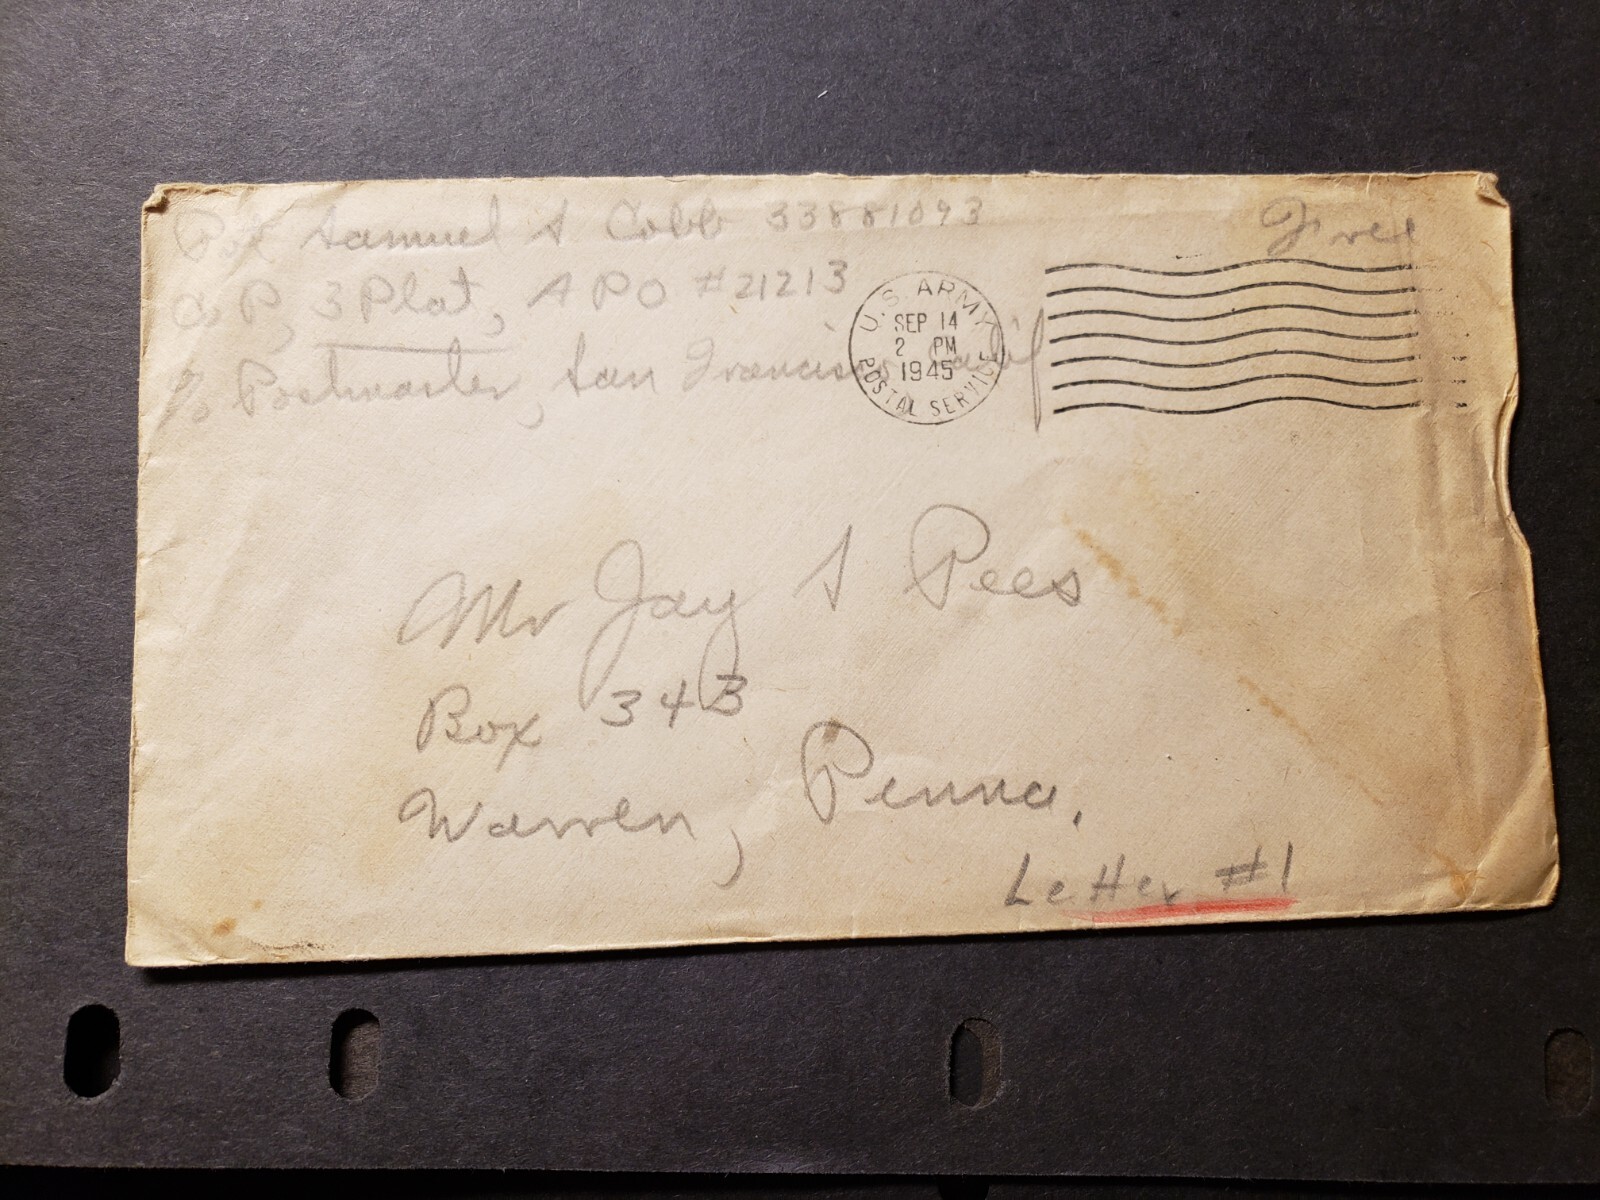 Pvt Samuel S Cobb 33881093
Free
Co P, 3 Plat, APO #21213
c/o Postmaster, San Francisco Calif
U.S. ARMY
SEP 14
2 PM
1945
POSTAL SERVICE
Mr Jay S Pees
Box 343
Warren, Penna.
Letter #1